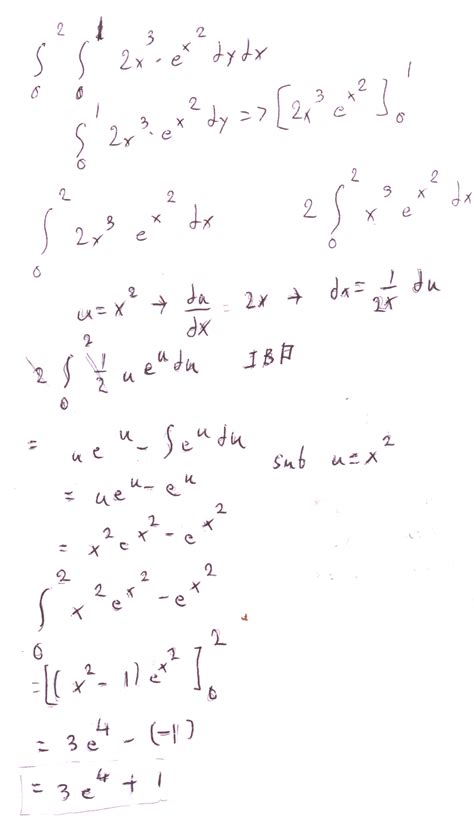 ∫₀² ∫₀¹ 2x³·e^(x²) dy dx
∫₀¹ 2x³·e^(x²) dy => [2x³ e^(x²)]₀¹
∫₀² 2x³ e^(x²) dx    2 ∫₀² x³ e^(x²) dx
u = x² → du/dx = 2x → dx = 1/2x du
2 ∫₀² 1/2 u e^u du    IBP
= u e^u - ∫ e^u du    sub u = x²
= u e^u - e^u
= x² e^(x²) - e^(x²)
∫₀² x² e^(x²) - e^(x²)
= [(x² - 1) e^(x²)]₀²
= 3e⁴ - (-1)
= 3e⁴ + 1